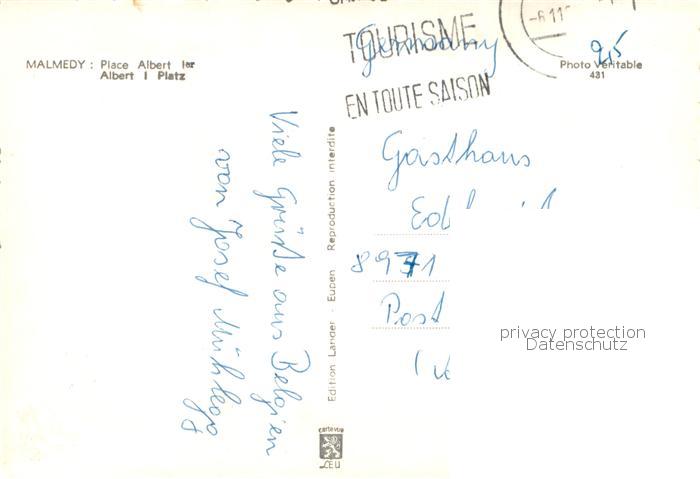 MALMEDY : Place Albert Ier
Albert I Platz
TOURISME
EN TOUTE SAISON
-6.11
Germany
9,5
Photo Véritable
431
Viele Grüße aus Belgien
von Josef
Edition Lander - Eupen Reproduction interdite
Gasthaus
8971
Post
privacy protection
Datenschutz
cartevue
LEU